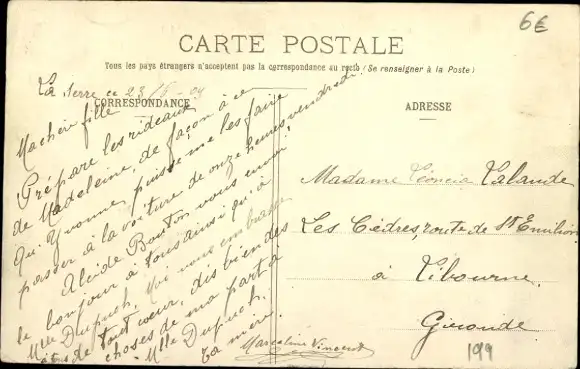 6€
CARTE POSTALE
Tous les pays étrangers n'acceptent pas la correspondance au recto (Se renseigner à la Poste)
CORRESPONDANCE
ADRESSE
La Serre ce 23/5-09
Ma chère fille
Prépare les rideaux
de Madeleine, de façon à ce
qu'Yvonne puisse me les faire
passer à la voiture de onze heures vendredi.
Alcide Boston vous envoi
le bonjour à tous ainsi qu'à
Mlle Dupuch. Qui vous embrasse
tous de tout cœur, dis bien des
choses de ma part à
Mlle Dupuch.
Ta mère.
Marceline Vincent
Madame Léoncia Lalande
Les Cèdres, route de St Emilion
à Libourne.
Gironde
199